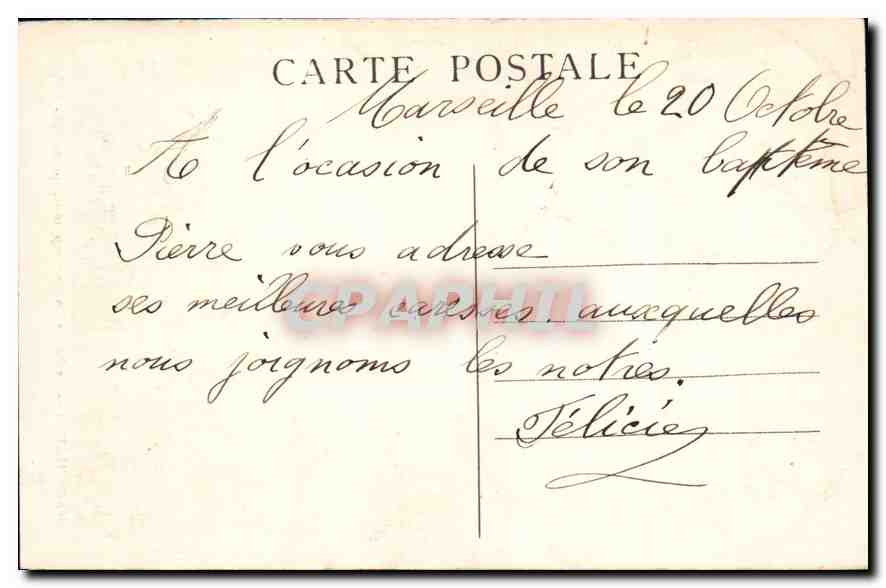 CARTE POSTALE
Marseille le 20 Octobre
A l'ocasion de son baptême
Pierre vous adresse
ses meilleures caresses. auxquelles
nous joignoms les notres.
Félicie
CPAPHIL